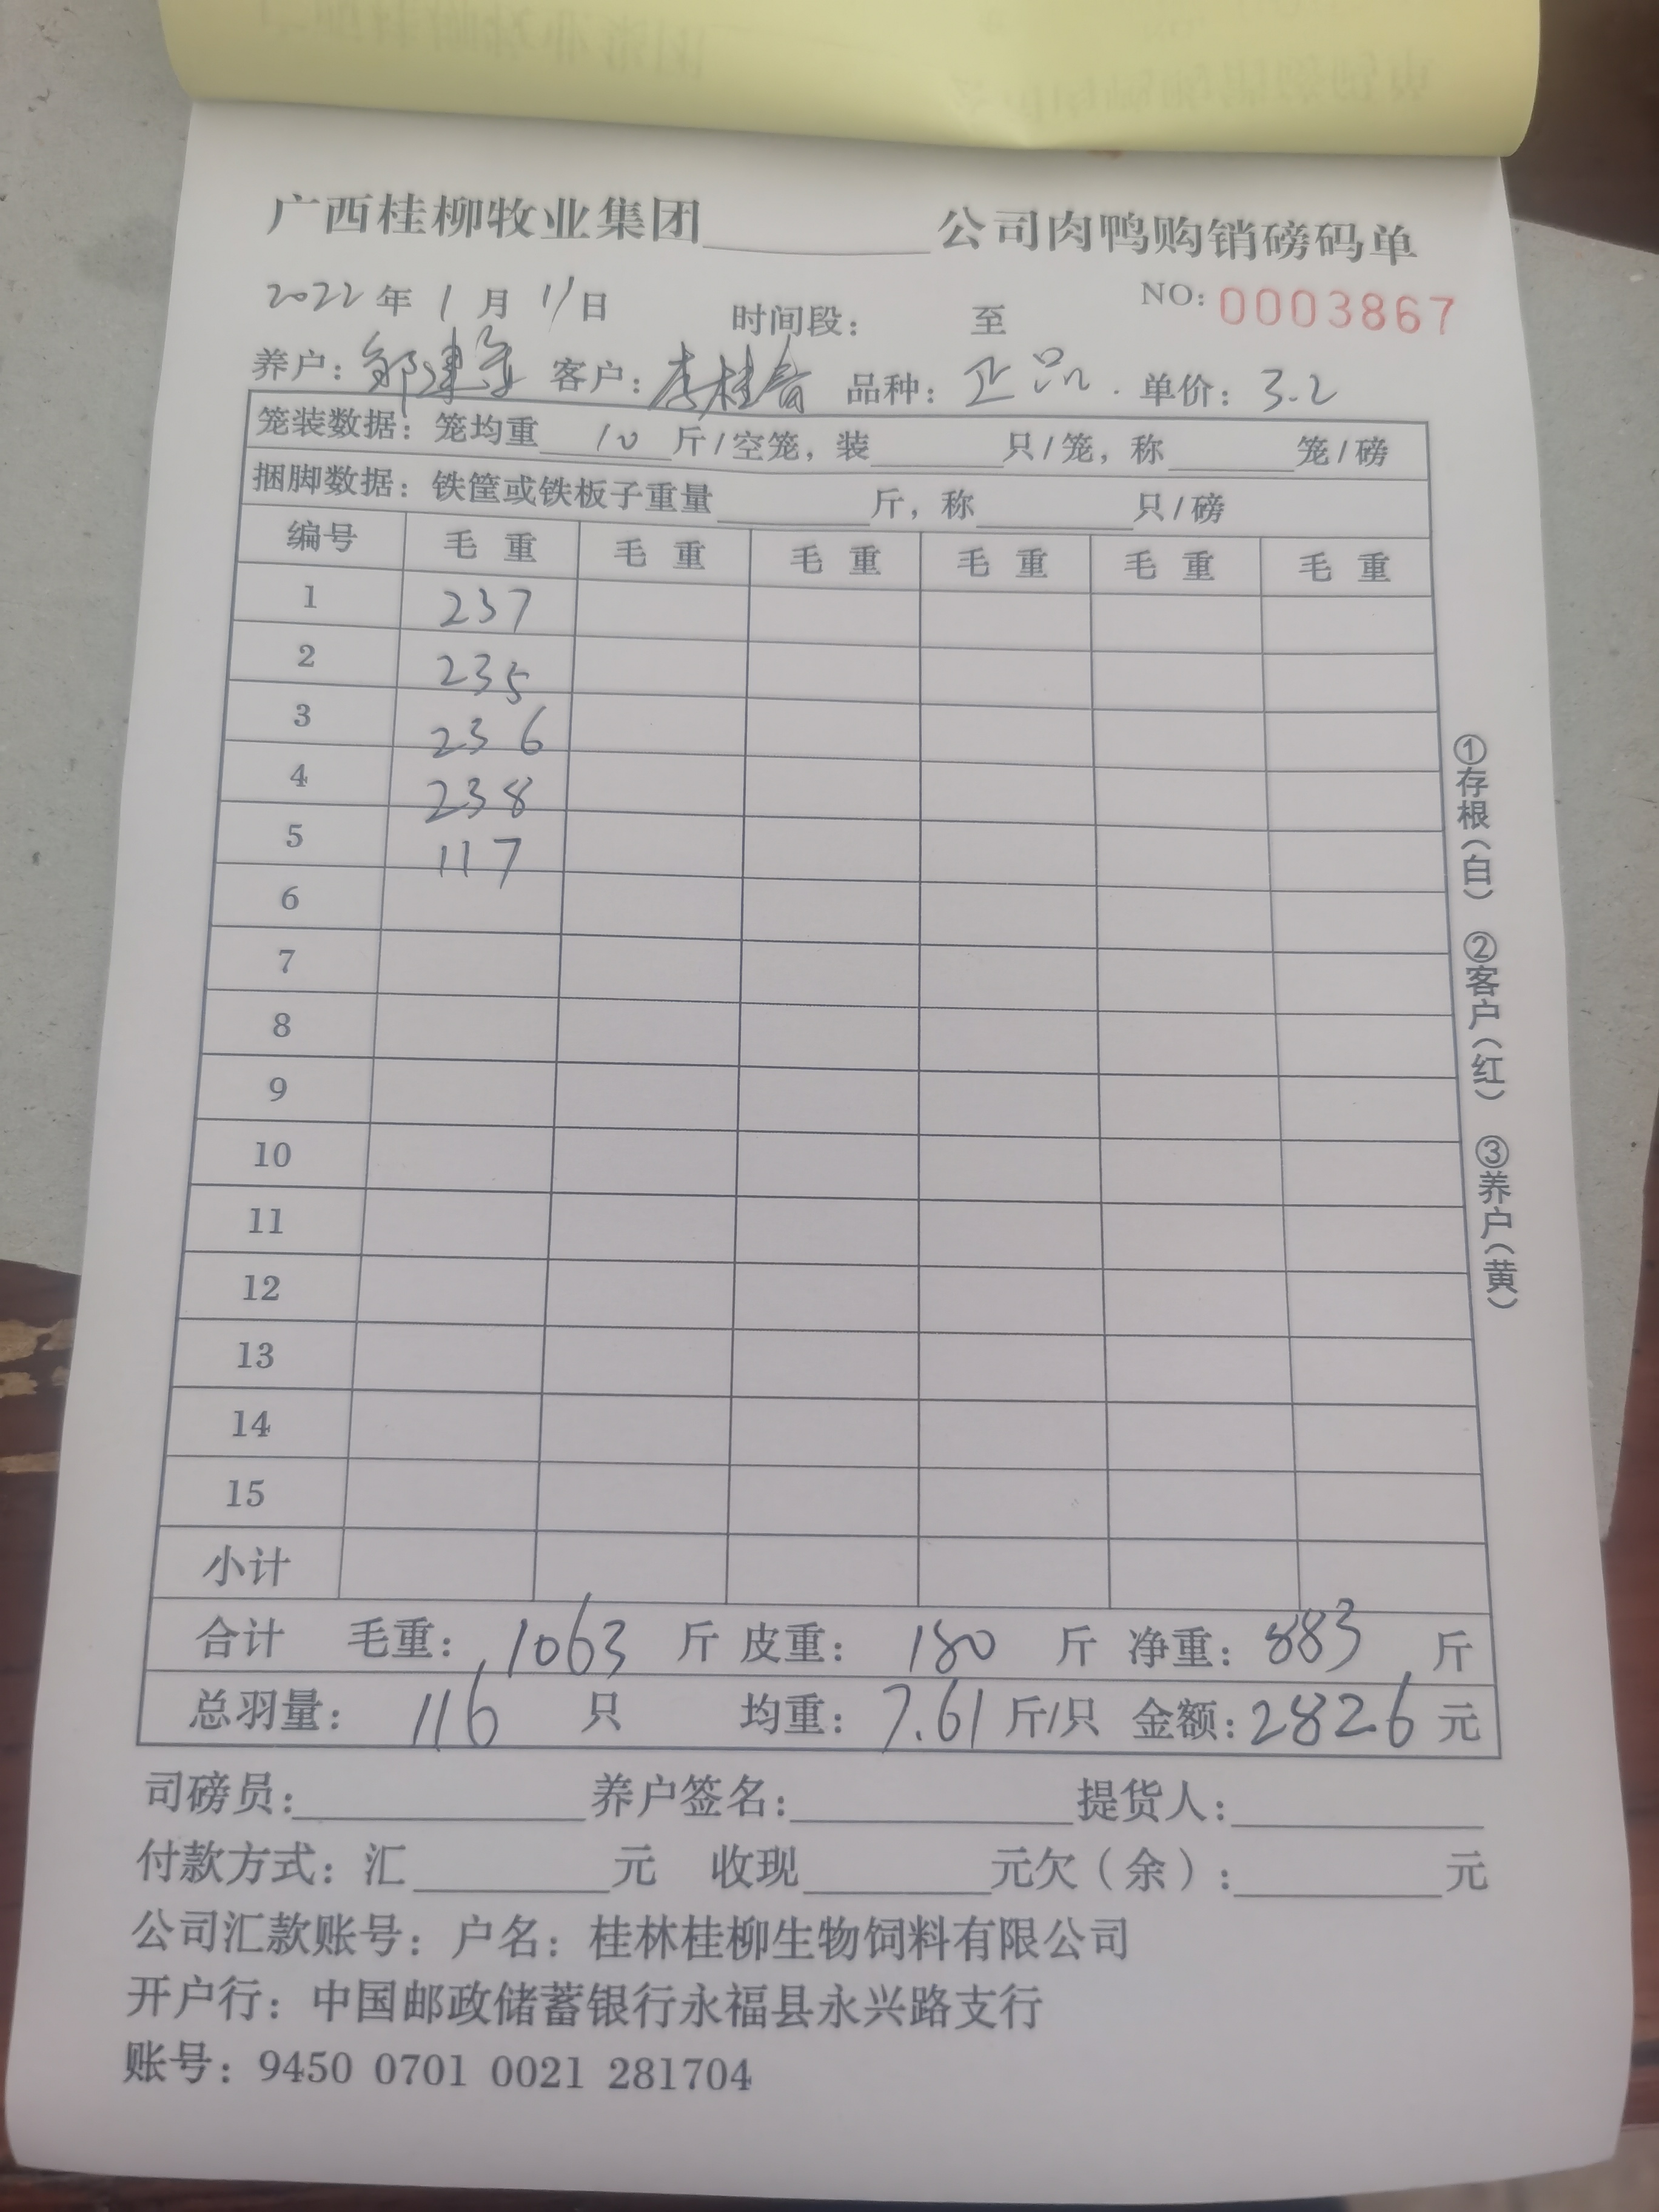 广西桂柳牧业集团________公司肉鸭购销磅码单
2022年1月11日 时间段： 至 NO：0003867
养户：邹建 客户：李桂 品种：正品. 单价：3.2
笼装数据：笼均重 10 斤/空笼，装______只/笼，称______笼/磅
捆脚数据：铁筐或铁板子重量______斤，称______只/磅
编号 毛重 毛重 毛重 毛重 毛重 毛重
1 237
2 235
3 236
4 238
5 117
6
7
8
9
10
11
12
13
14
15
小计
合计 毛重：1063 斤 皮重：180 斤 净重：883 斤
总羽量：116 只 均重：7.61 斤/只 金额：2826 元
司磅员：________养户签名：________提货人：________
付款方式：汇______元 收现______元欠（余）：______元
公司汇款账号：户名：桂林桂柳生物饲料有限公司
开户行：中国邮政储蓄银行永福县永兴路支行
账号：9450 0701 0021 281704
①存根（白） ②客户（红） ③养户（黄）